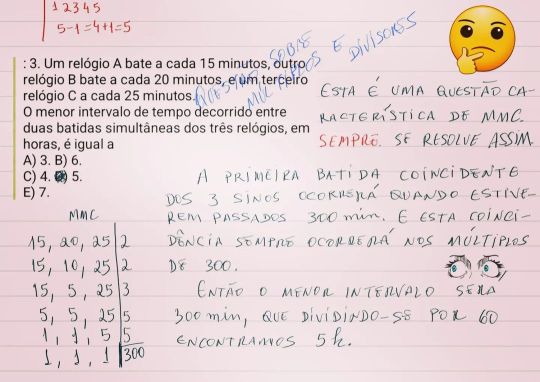 1 2 3 4 5
5-1=4+1=5
QUESTÃO SOBRE
MÚLTIPLOS E DIVISORES
: 3. Um relógio A bate a cada 15 minutos, outro
relógio B bate a cada 20 minutos, e um terceiro
relógio C a cada 25 minutos.
O menor intervalo de tempo decorrido entre
duas batidas simultâneas dos três relógios, em
horas, é igual a
A) 3. B) 6.
C) 4. D) 5.
E) 7.
ESTA É UMA QUESTÃO CA-
RACTERÍSTICA DE MMC.
SEMPRE SE RESOLVE ASSIM.
A PRIMEIRA BATIDA COINCIDENTE
DOS 3 SINOS OCORRERÁ QUANDO ESTIVE-
REM PASSADOS 300 min. E ESTA COINCI-
DÊNCIA SEMPRE OCORRERÁ NOS MÚLTIPLOS
DE 300.
ENTÃO O MENOR INTERVALO SERÁ
300 min, QUE DIVIDINDO-SE POR 60
ENCONTRAMOS 5h.
MMC
15, 20, 25 | 2
15, 10, 25 | 2
15, 5, 25 | 3
5, 5, 25 | 5
1, 1, 5 | 5
1, 1, 1 | 300